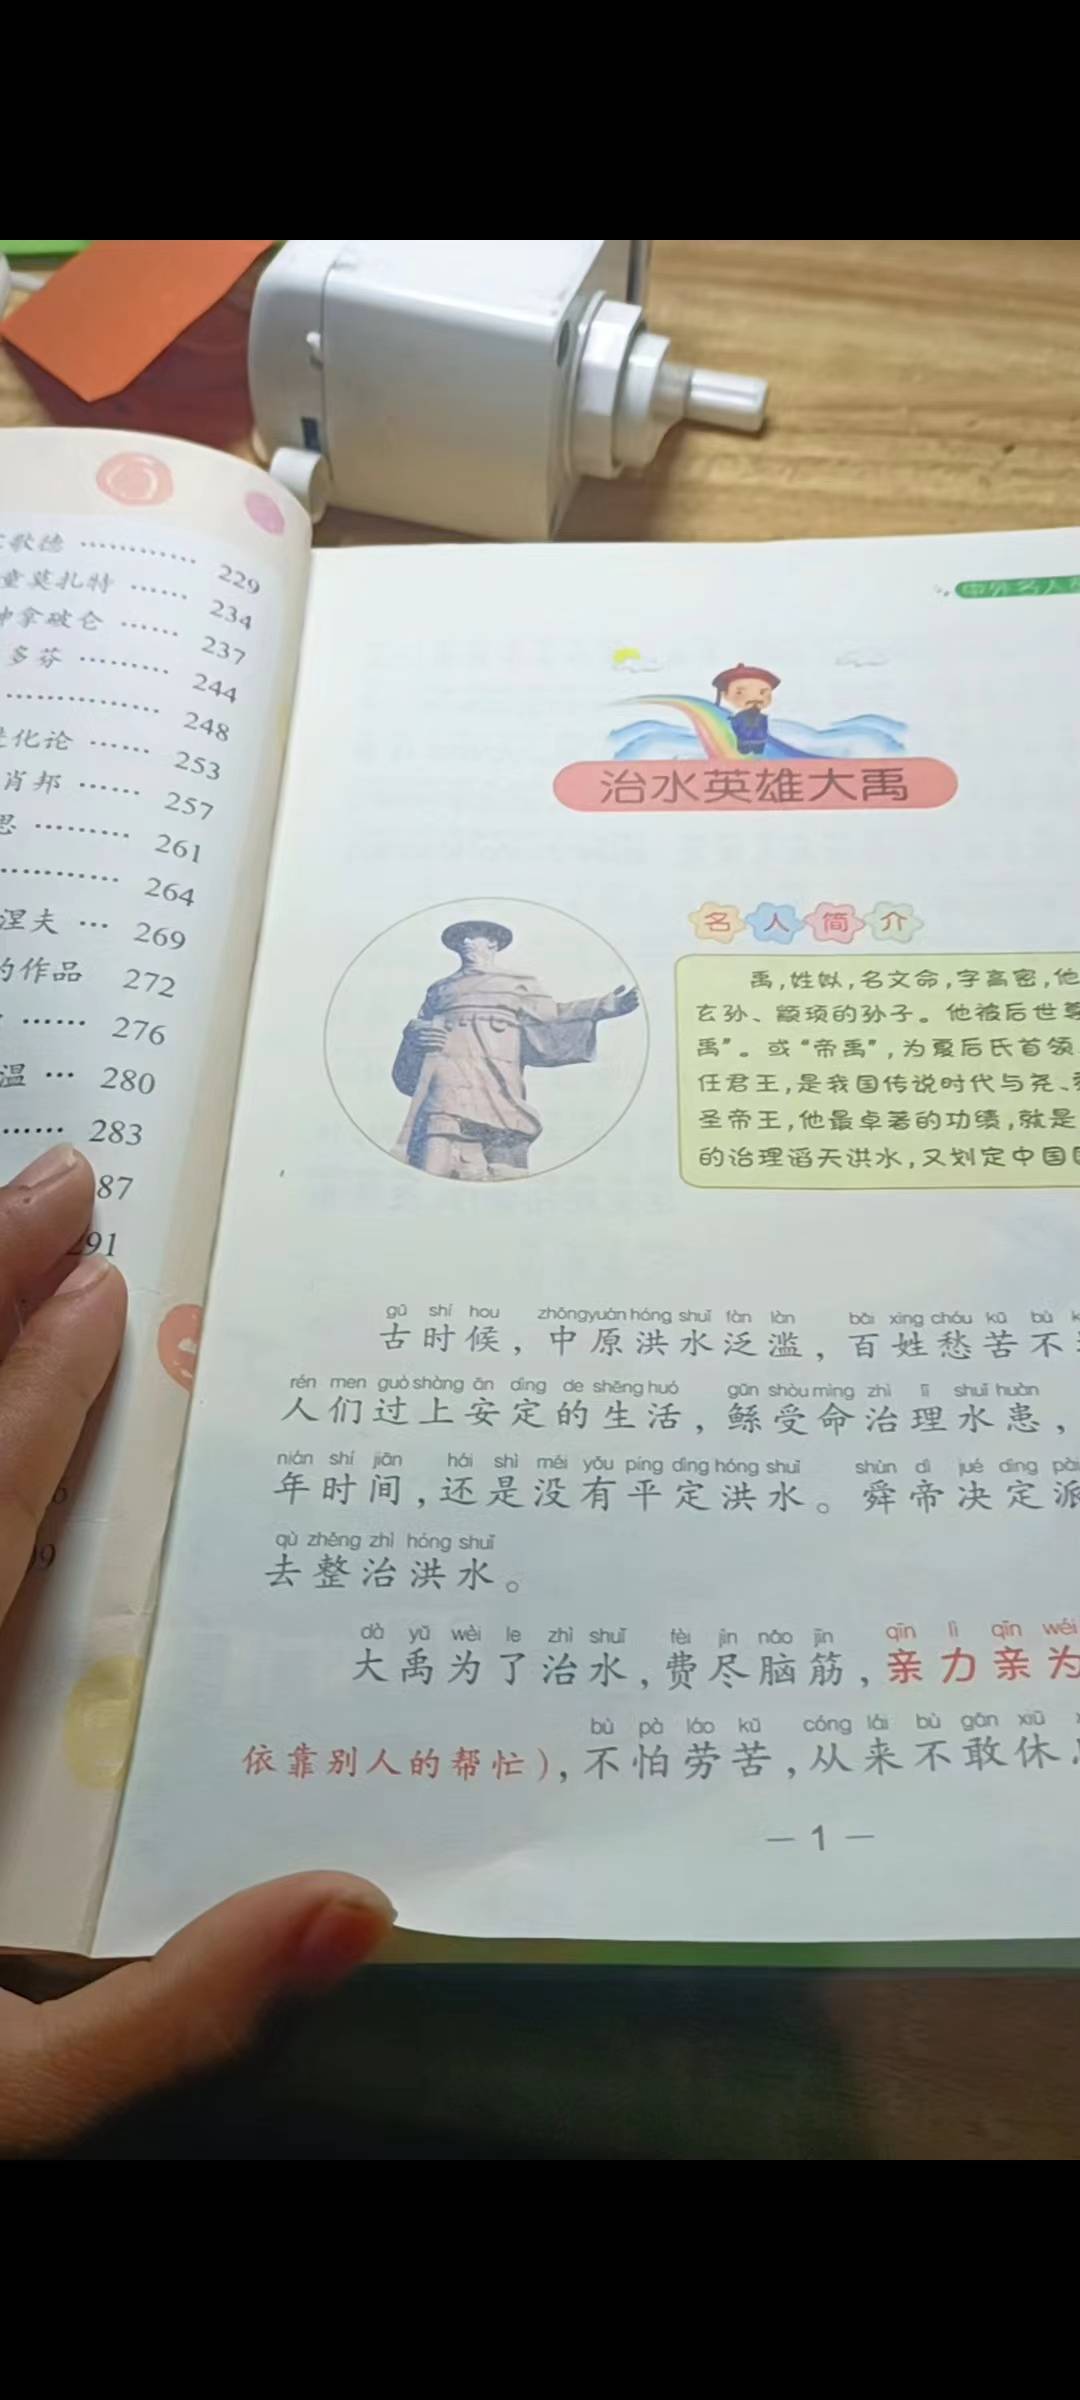 歌德 ………… 229
童莫扎特 …… 234
神拿破仑 …… 237
多芬 ……… 244
…………… 248
进化论 …… 253
肖邦 …… 257
思 ……… 261
………… 264
涅夫 … 269
的作品 272
…… 276
温 … 280
…… 283
87
291
99
中外名人
治水英雄大禹
名人简介
禹,姓姒,名文命,字高密,他
玄孙、颛顼的孙子。他被后世尊
禹”。或“帝禹”,为夏后氏首领
任君王,是我国传说时代与尧、
圣帝王,他最卓著的功绩,就是
的治理滔天洪水,又划定中国
gǔ shí hou zhōngyuán hóng shuǐ fàn làn bǎi xìng chóu kǔ bù
古时候，中原洪水泛滥，百姓愁苦不
rén men guò shàng ān dìng de shēng huó gǔn shòu mìng zhì lǐ shuǐ huàn
人们过上安定的生活，鲧受命治理水患，
nián shí jiān hái shì méi yǒu píng dìng hóng shuǐ shùn dì jué dìng pài
年时间，还是没有平定洪水。舜帝决定派
qù zhěng zhì hóng shuǐ
去整治洪水。
dà yǔ wèi le zhì shuǐ fèi jìn nǎo jīn qīn lì qīn wéi
大禹为了治水，费尽脑筋，亲力亲为
bù pà láo kǔ cóng lái bù gǎn xiū
依靠别人的帮忙)，不怕劳苦，从来不敢休
— 1 —